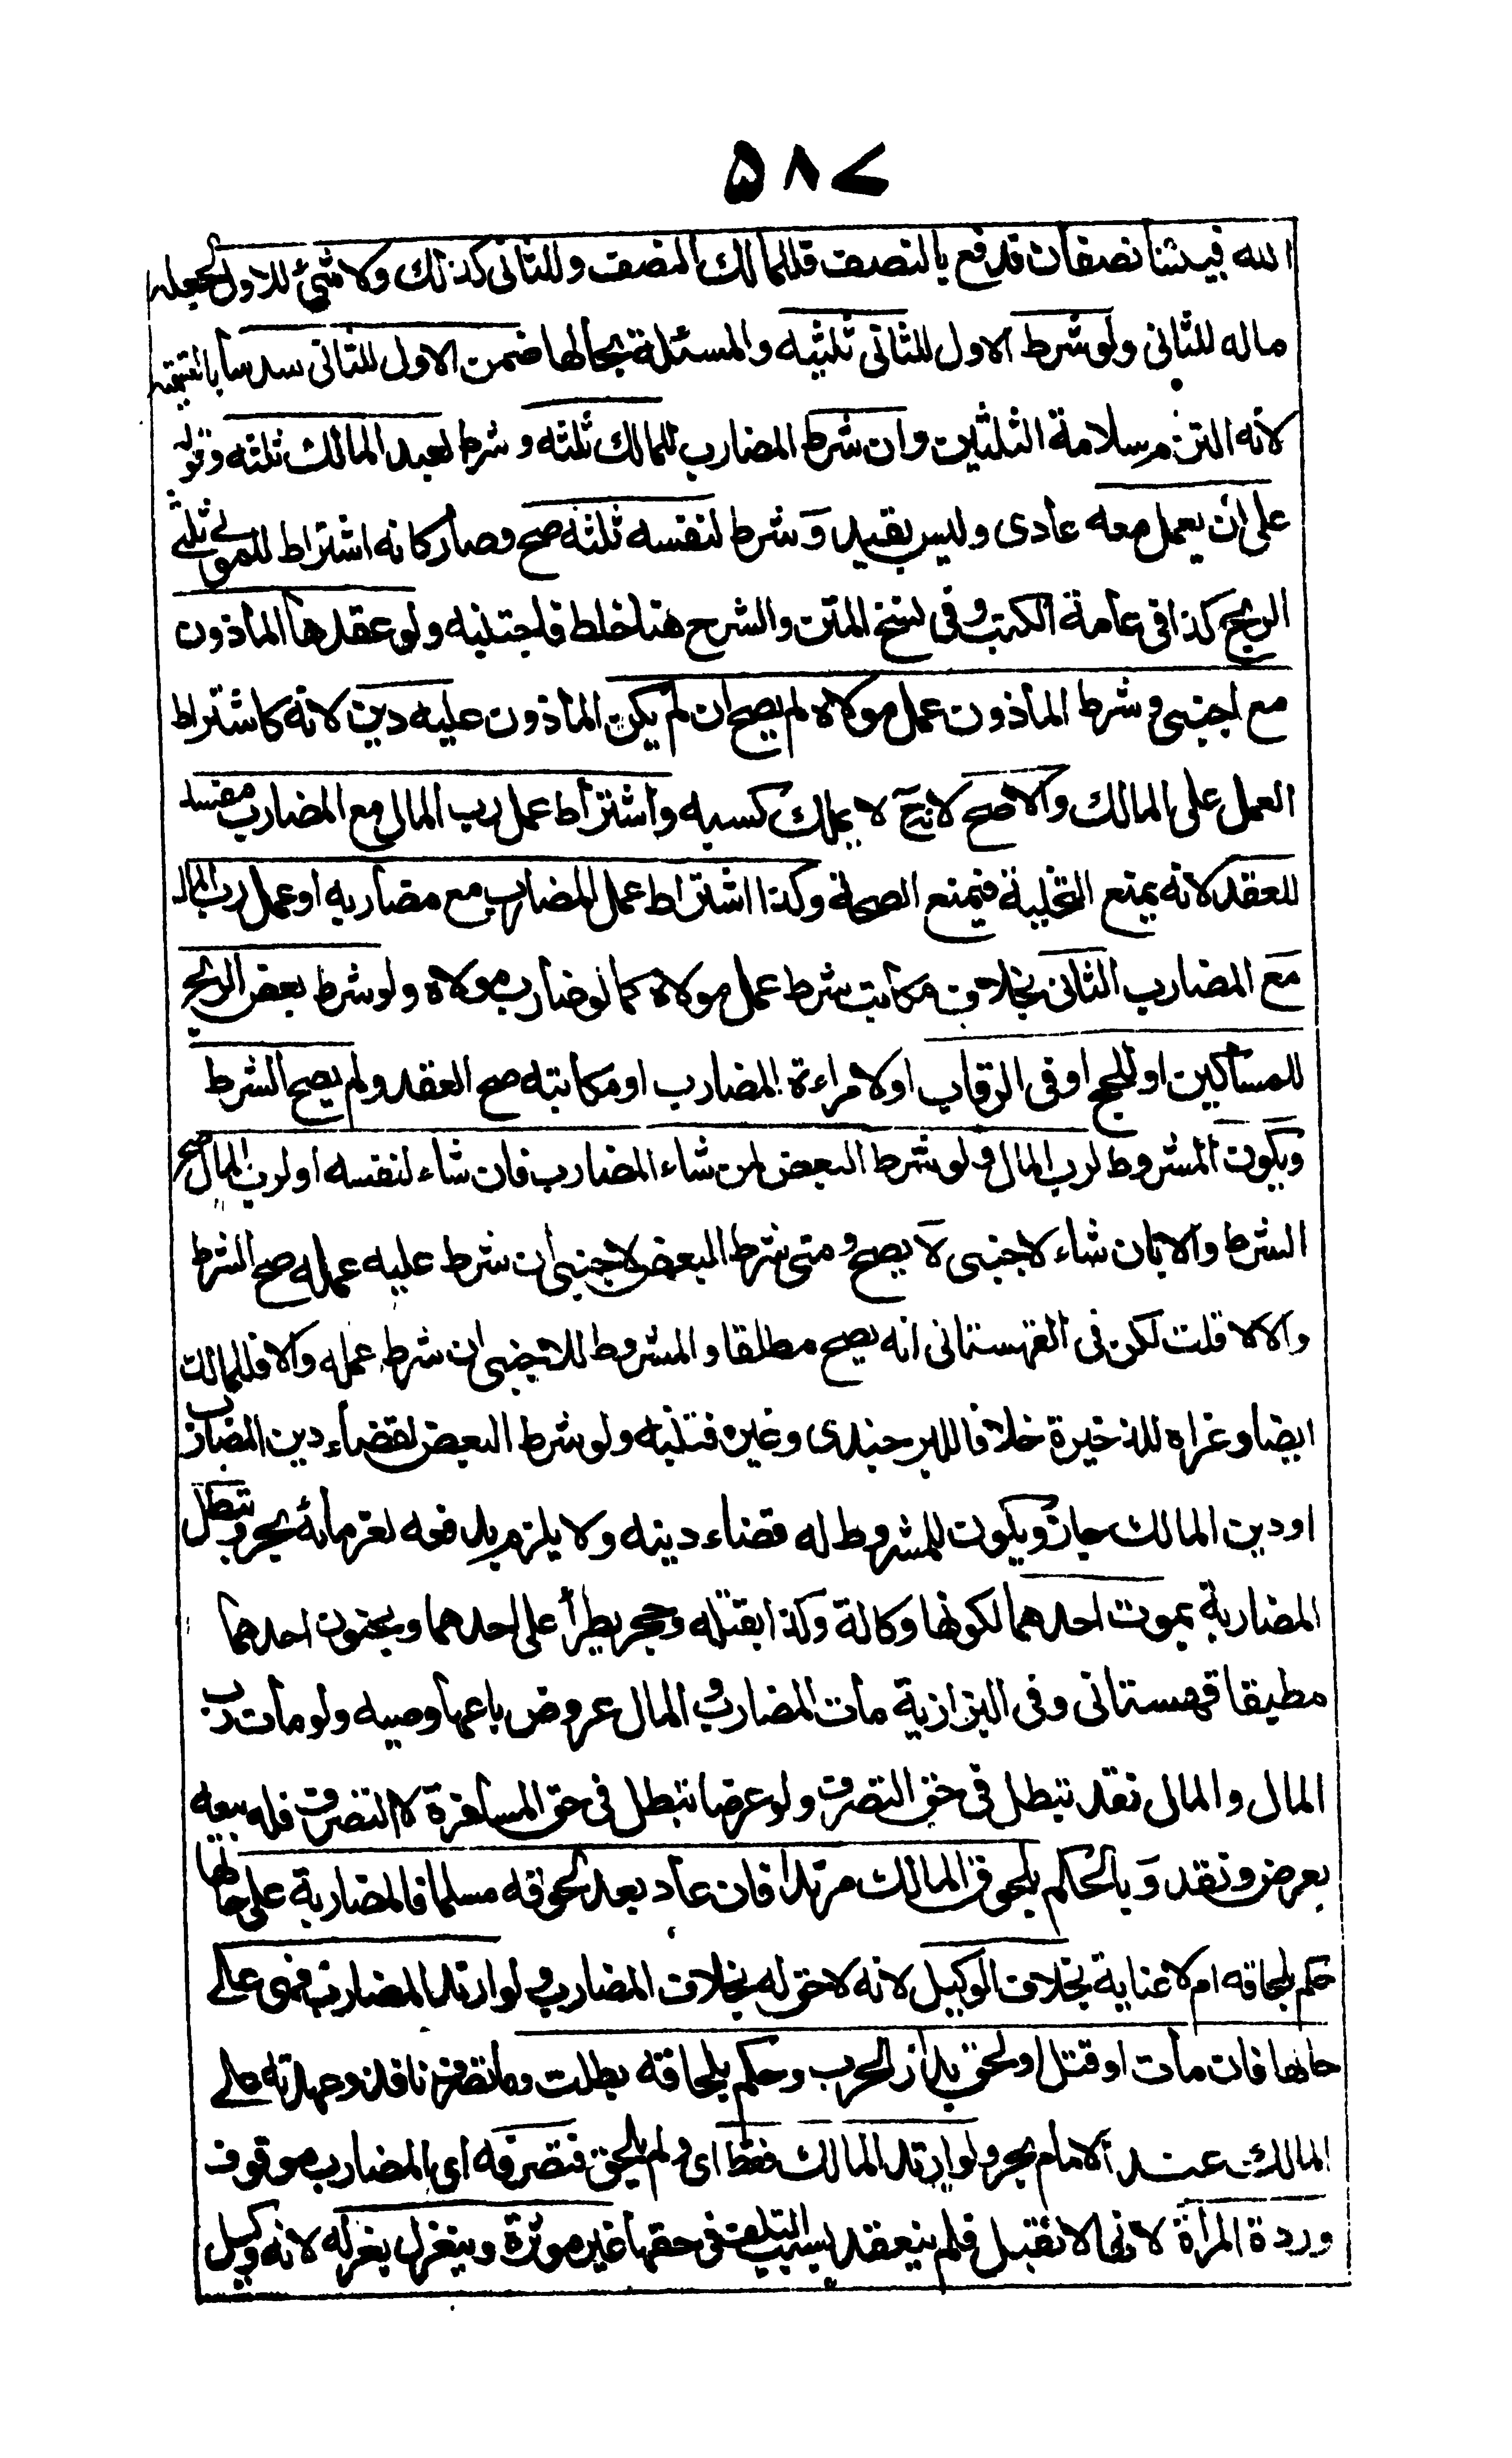 ۵۸۷
الله فبيننا نصفان فدفع بالنصف فللمالك النصف وللثانى كذلك ولا شئ للاول لجعله
ماله للثانى ولو شرط الاول للثانى ثلثيه والمسئلة بحالها ضمن الاول للثانى سدسا بالتسمية
لانه التزم سلامة الثلثين وان شرط المضارب للمالك ثلثه وشرط لعبد المالك ثلثه وقوله
على ان يعمل معه عادى وليس بقيد و شرط لنفسه ثلثه صح وصار كانه اشتراط للمولى ثلثى
الربح كذا فى عامة الكتب وفى نسخ المتن والشرح هنا خلط فاجتنبه ولو عقدها المأذون
مع اجنبى و شرط المأذون عمل مولاه لم يصح ان لم يكن المأذون عليه دين لانه كاشتراط
العمل على المالك والا صح لانه ح لا يملك كسبه واشتراط عمل رب المال مع المضارب مفسد
للعقد لانه يمنع التخلية فيمنع الصحة وكذا اشتراط عمل المضارب مع مضاربه او عمل رب المال
مع المضارب الثانى بخلاف مكاتب شرط عمل مولاه كما لو ضارب مولاه ولو شرط بعض الربح
للمساكين او للحج او فى الرقاب او لامراءة المضارب او مكاتبه صح العقد ولم يصح الشرط
ويكون المشروط لرب المال ولو شرط البعض لمن شاء المضارب فان شاء لنفسه او لرب المال صح
الشرط والا بان شاء لاجنبى لا يصح ومتى شرط البعض لاجنبى ان شرط عليه عمله صح الشرط
والا لا قلت لكن فى القهستانى انه يصح مطلقا والمشروط للاجنبى ان شرط عمله والا فللمالك
ايضا وعزاه للذخيرة خلافا للبرجندى وغيره فتنبه ولو شرط البعض لقضاء دين المضارب
او دين المالك جاز ويكون للمشروط له قضاء دينه ولا يلزم بدفعه لغرمائه بحر وتبطل
المضاربة بموت احدهما لكونها وكالة وكذا بقتله وحجر يطرأ على احدهما وبجنون احدهما
مطبقا قهستانى وفى البزازية مات المضارب والمال عروض باعها وصيه ولو مات رب
المال والمال نقد تبطل فى حق التصرف ولو عرضا تبطل فى حق المسافرة لا التصرف فله بيعه
بعرض ونقد و بالحكم بلحوق المالك مرتدا فان عاد بعد لحوقه مسلما فالمضاربة على حالها
حكم بلحاقه ام لا عناية بخلاف الوكيل لانه لا حق له بخلاف المضارب ولو ارتد المضارب فهى على
حالها فان مات او قتل او لحق بدار الحرب وحكم بلحاقه بطلت وما تصرف نافذ وعهدته على
المالك عند الامام بحر ولو ارتد المالك فقط اى ولم يلحق فتصرفه اى المضارب موقوف
وردة المرأة لانها لا تقتل فلم ينعقد بسبب التلف فى حقها غير موثرة وينعزل بعزله لانه وكيل